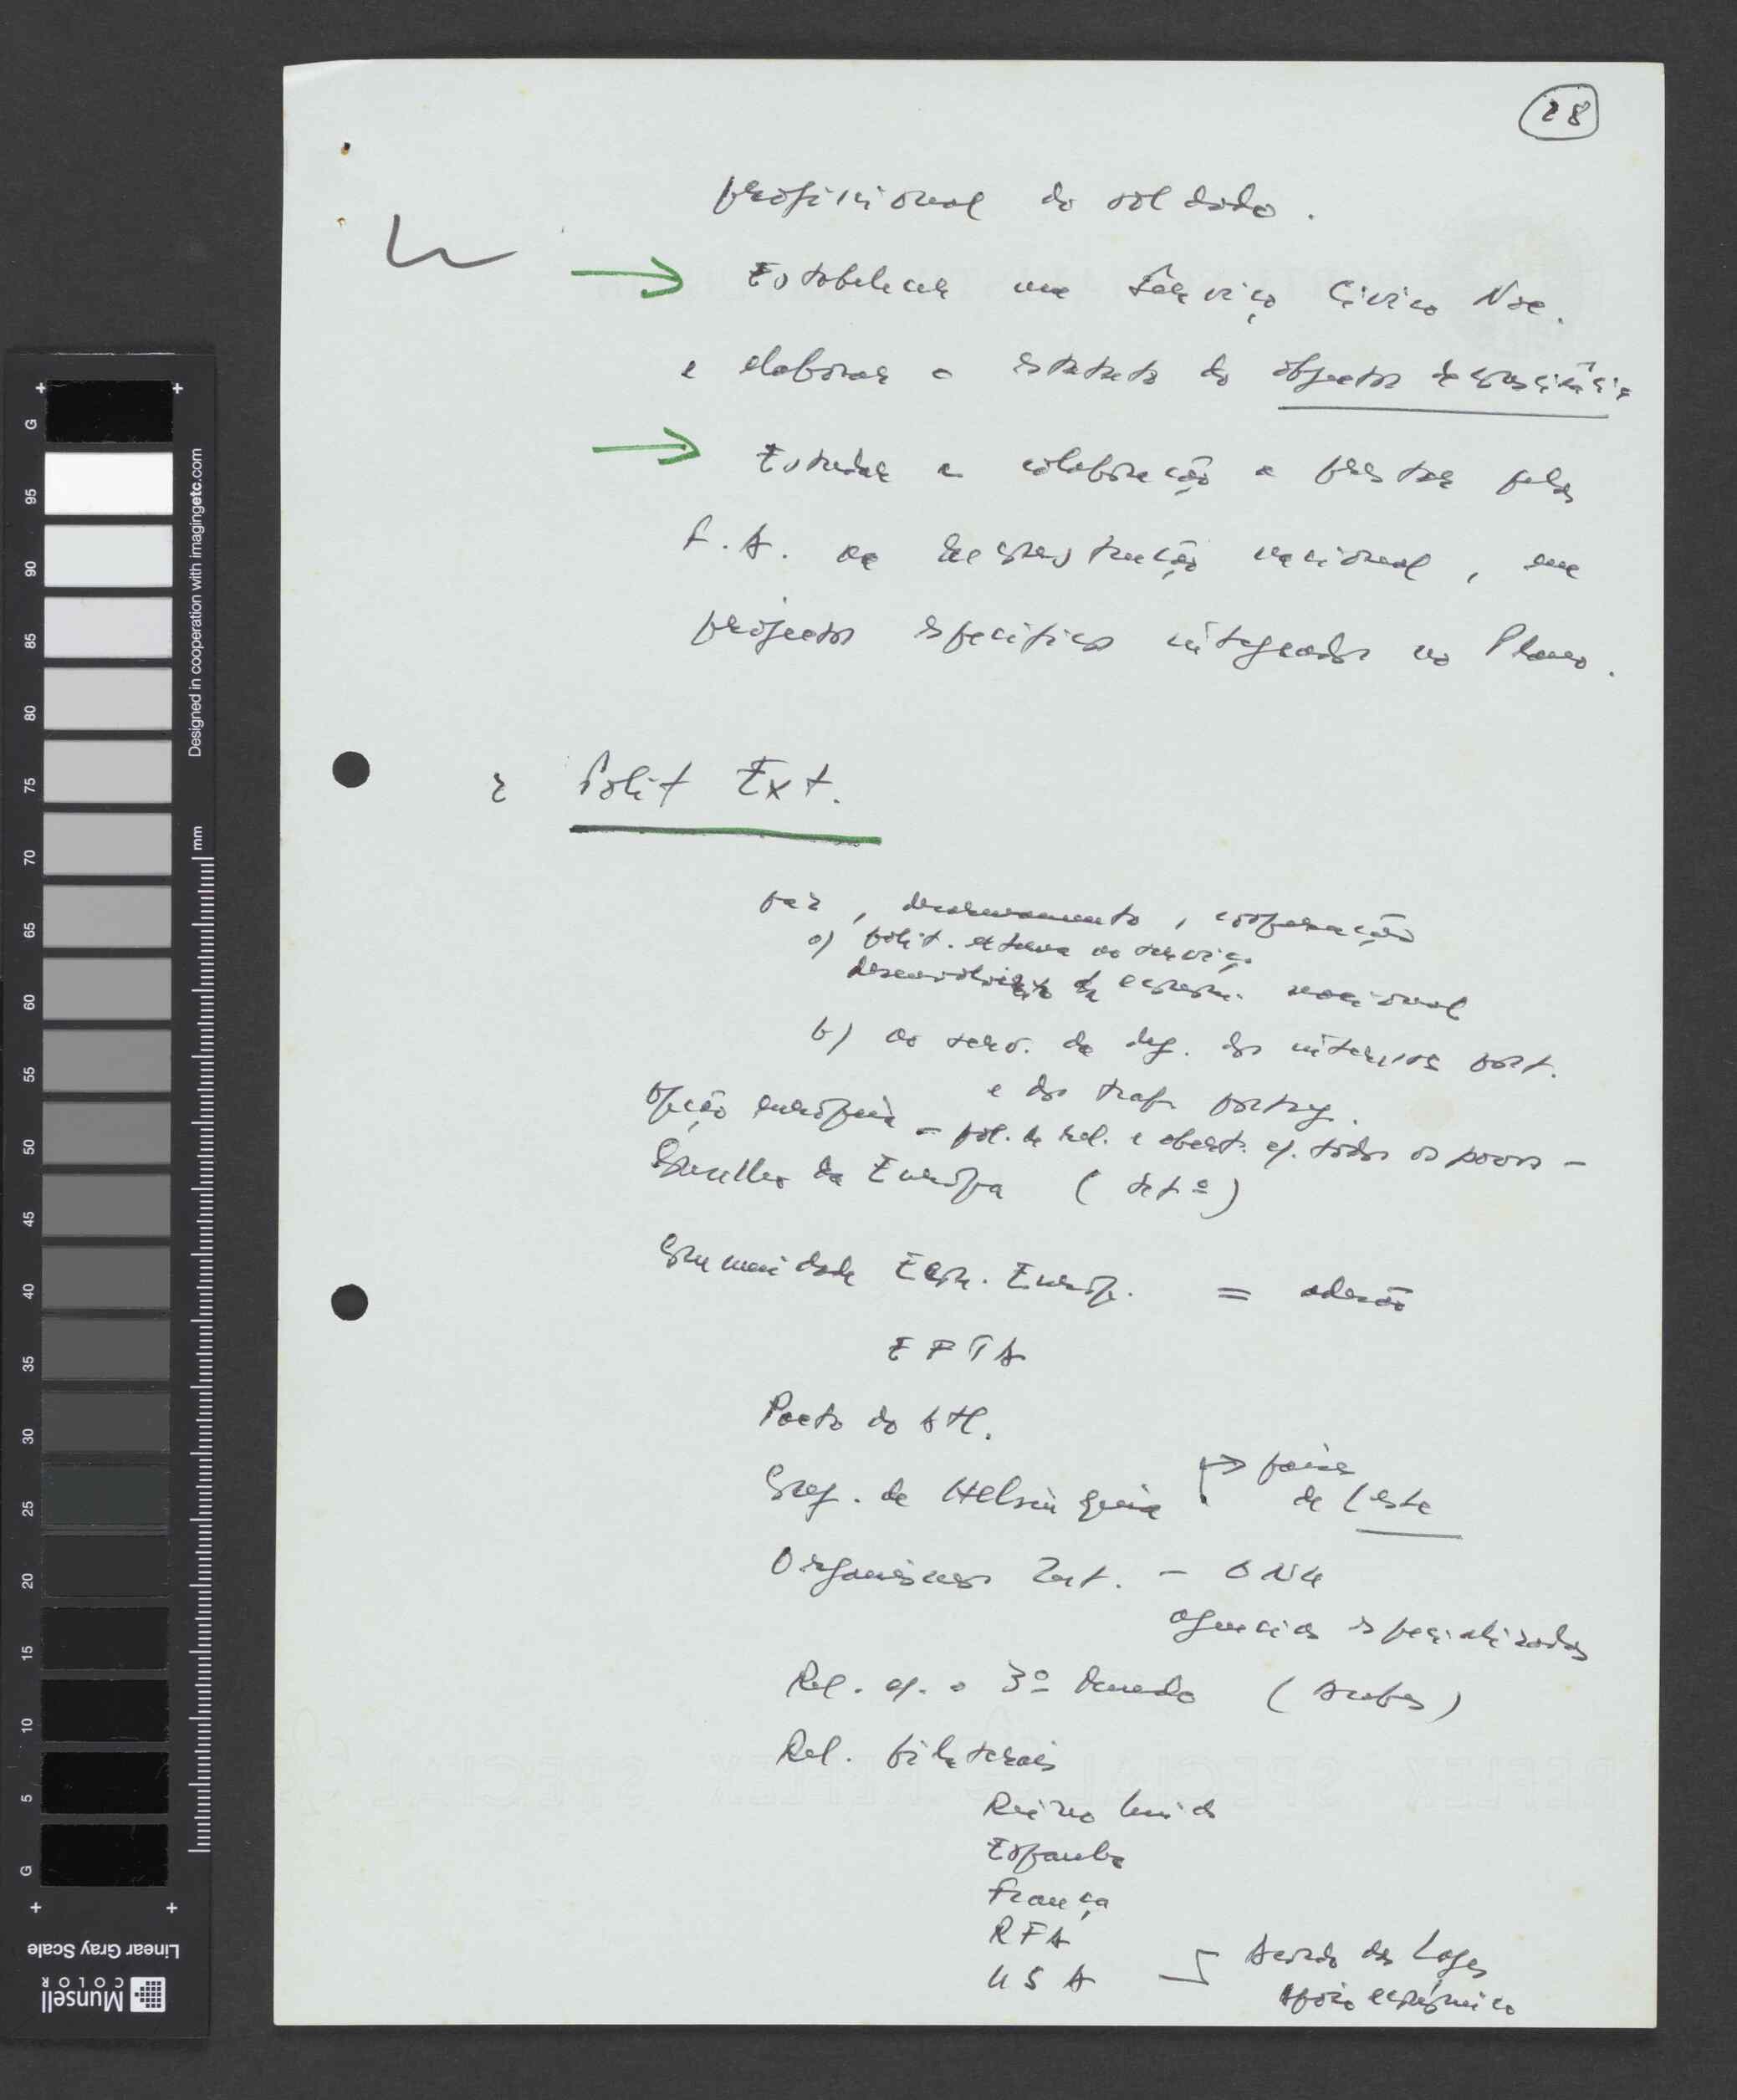 28
profissional do soldado.
Estabelecer um Serviço Cívico Nac.
e elaborar o estatuto do objector de consciência
Estudar a colaboração a prestar pelas
F.A. na reconstrução nacional, em
projectos específicos integrados no Plano.
2 Polit Ext.
paz, desarmamento, cooperação
a) polit. externa ao serviço
desenvolvimento da econom. nacional
b) ao serv. da def. dos interesses port.
e dos trab. portug.
Opção europeia = pol. de rel. e abert. c/. todos os povos -
Conselho da Europa ( setº )
Comunidade Econ. Europ. = adesão
EFTA
Pacto do Atl.
Conf. de Helsínquia → países
de Leste
Organismos Int. - ONU
agencias especializadas
Rel. c/. o 3º Mundo ( Arabes )
Rel. bilaterais
Reino Unido
Espanha
França
RFA
USA Acordo das Lages
Apoio económico
Designed in cooperation with imagingetc.com
mm
G 95 90 85 80 75 70 65 60 55 50 45 40 35 30 25 20 15 10 5 G
Munsell
COLOR
Linear Gray Scale